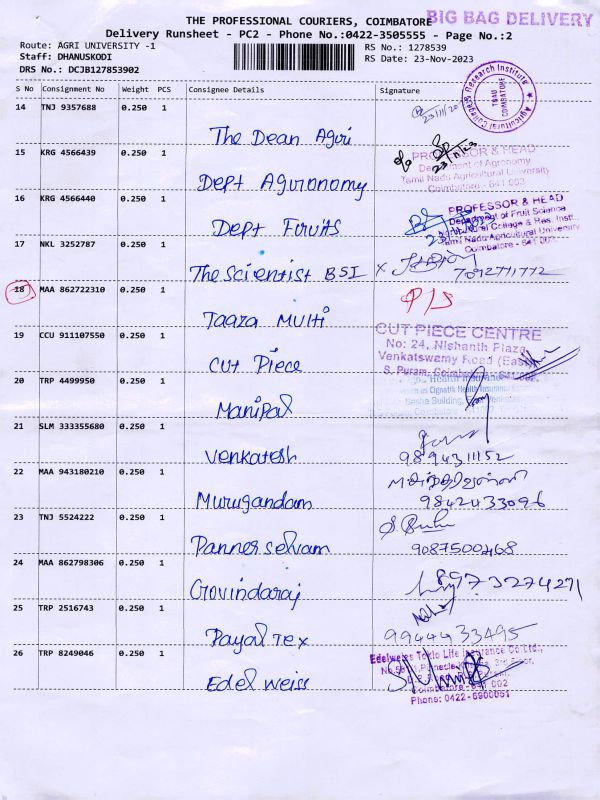 THE PROFESSIONAL COURIERS, COIMBATORE
BIG BAG DELIVERY
Delivery Runsheet - PC2 - Phone No.:0422-3505555 - Page No.:2
Route: AGRI UNIVERSITY -1
RS No.: 1278539
Staff: DHANUSKODI
RS Date: 23-Nov-2023
DRS No.: DCJB127853902
S No Consignment No Weight PCS Consignee Details Signature
14 TNJ 9357688 0.250 1
The Dean Agri
Agricultural College & Research Institute
TNAU
COIMBATORE
15 KRG 4566439 0.250 1
Dept Agronomy
PROFESSOR & HEAD
Department of Agronomy
Tamil Nadu Agricultural University
Coimbatore - 641 003
16 KRG 4566440 0.250 1
Dept Fruits
PROFESSOR & HEAD
Department of Fruit Science
Agricultural College & Res. Inst.
Tamil Nadu Agricultural University
Coimbatore - 641 003
17 NKL 3252787 0.250 1
The Scientist BSI
18 MAA 862722310 0.250 1
Taaza Multi
P/S
19 CCU 911107550 0.250 1
Cut Piece
CUT PIECE CENTRE
No: 24, Nishanth Plaza,
Venkatswamy Road (East)
20 TRP 4499950 0.250 1
Manipal
21 SLM 333355680 0.250 1
Venkatesh
9894311152
22 MAA 943180210 0.250 1
Murugandam
9842433096
23 TNJ 5524222 0.250 1
Panner selvam
9087500468
24 MAA 862798306 0.250 1
Govindaraj
8973274271
25 TRP 2516743 0.250 1
Payal Tex
9944433495
26 TRP 8249046 0.250 1
Edel weiss
Edelweiss Tokio Life Insurance Co Ltd.,
Coimbatore - 641 002
Phone: 0422-6900061